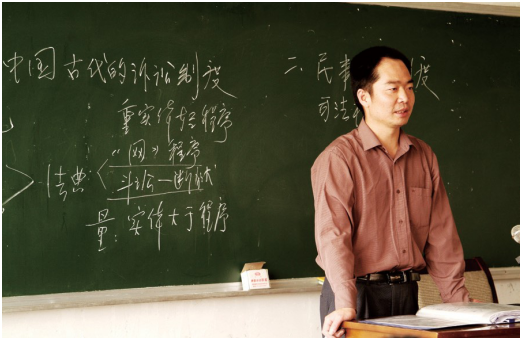 中国古代的诉讼制度
重实体轻程序
《网》程序
法典:
斗讼—断狱
量:实体大于程序
二、民事 度
司法